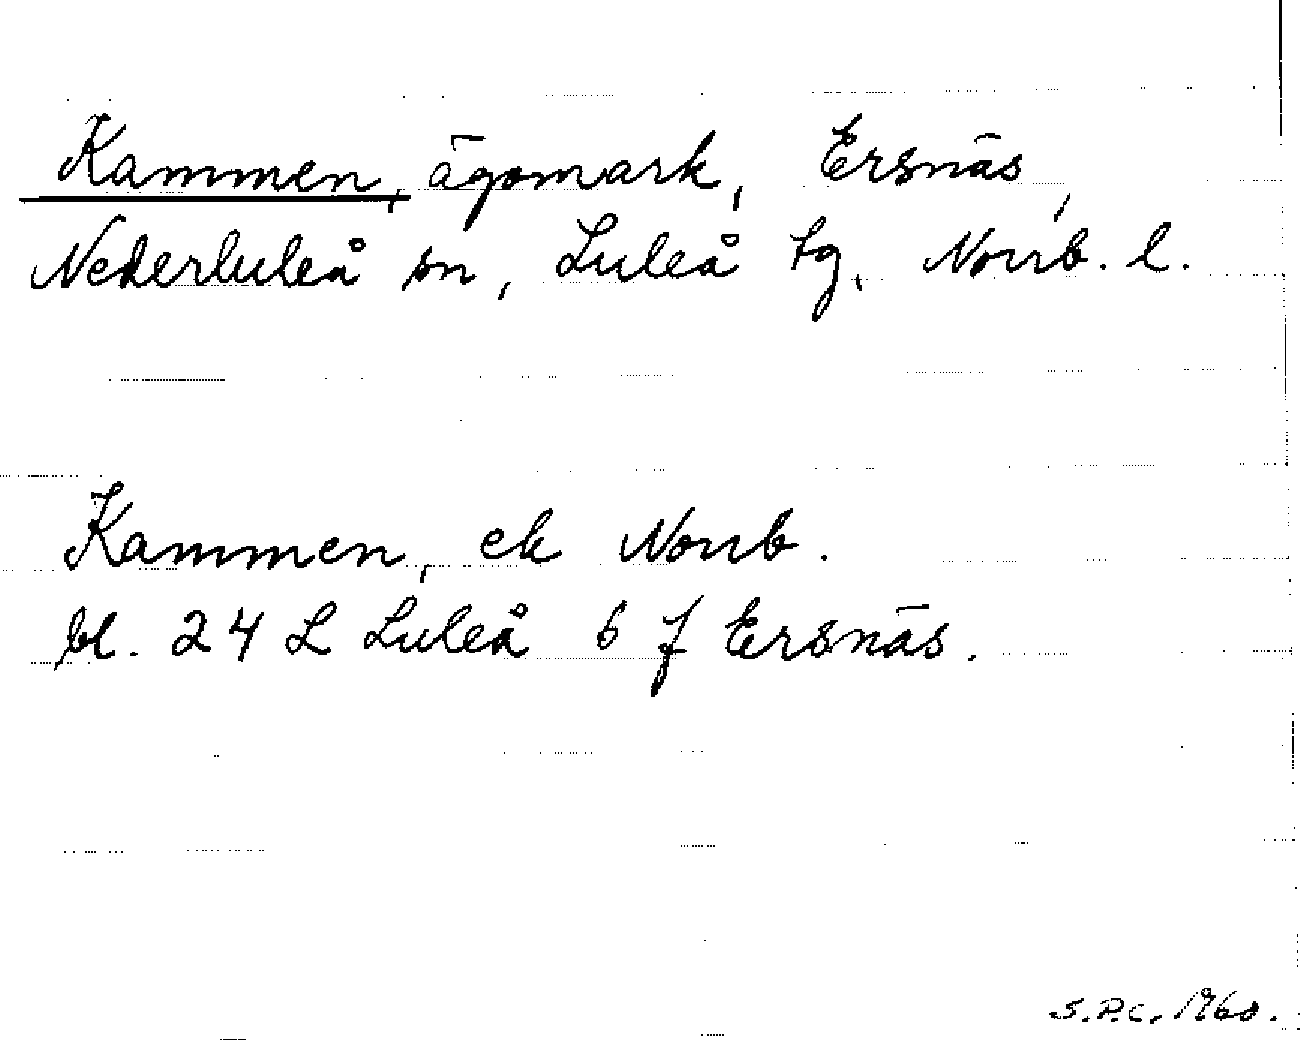 Kammen, ägomark, Ersnäs,
Nederluleå sn, Luleå tg. Norrb. l.
Kammen, ek Norrb.
bl. 24 L Luleå 6 f Ersnäs.
S.P.C. 1960.